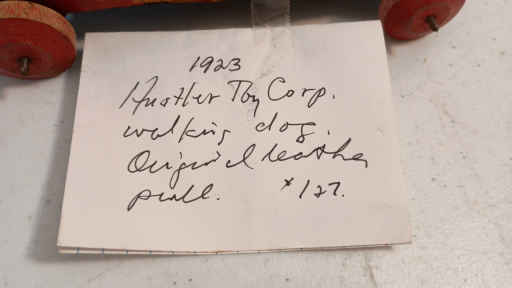 1923
Hustler Toy Corp.
walking dog.
Original leather
pull. $127.